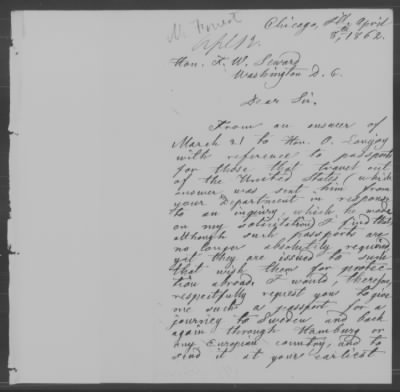 M. Forrest
Apl 12.
Chicago, Ill. April
8th, 1862.
Hon. F. W. Seward
Washington D. C.
Dear Sir.
From an answer of
March 21 to Hon. O. Lovejoy
with reference to passports
for those that travel out
of the United States (which
answer was sent him from
your Department in response
to an inquiry, which he made
on my solicitation) I find that
although such passports are
no longer absolutely required
yet they are issued to such
that wish them for protec-
tion abroad. I would, therefore,
respectfully request you to give
me such a passport for a
journey to Sweden and back
again through Hamburg or
any European country, and to
send it at your earliest